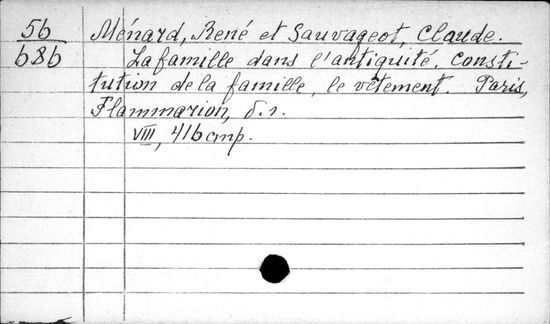 56 Ménard, René et Sauvageot, Claude.
686 La famille dans l'antiquité. Consti-
tution de la famille, le vêtement. Paris,
Flammarion, б.г.
VIII, 416 стр.